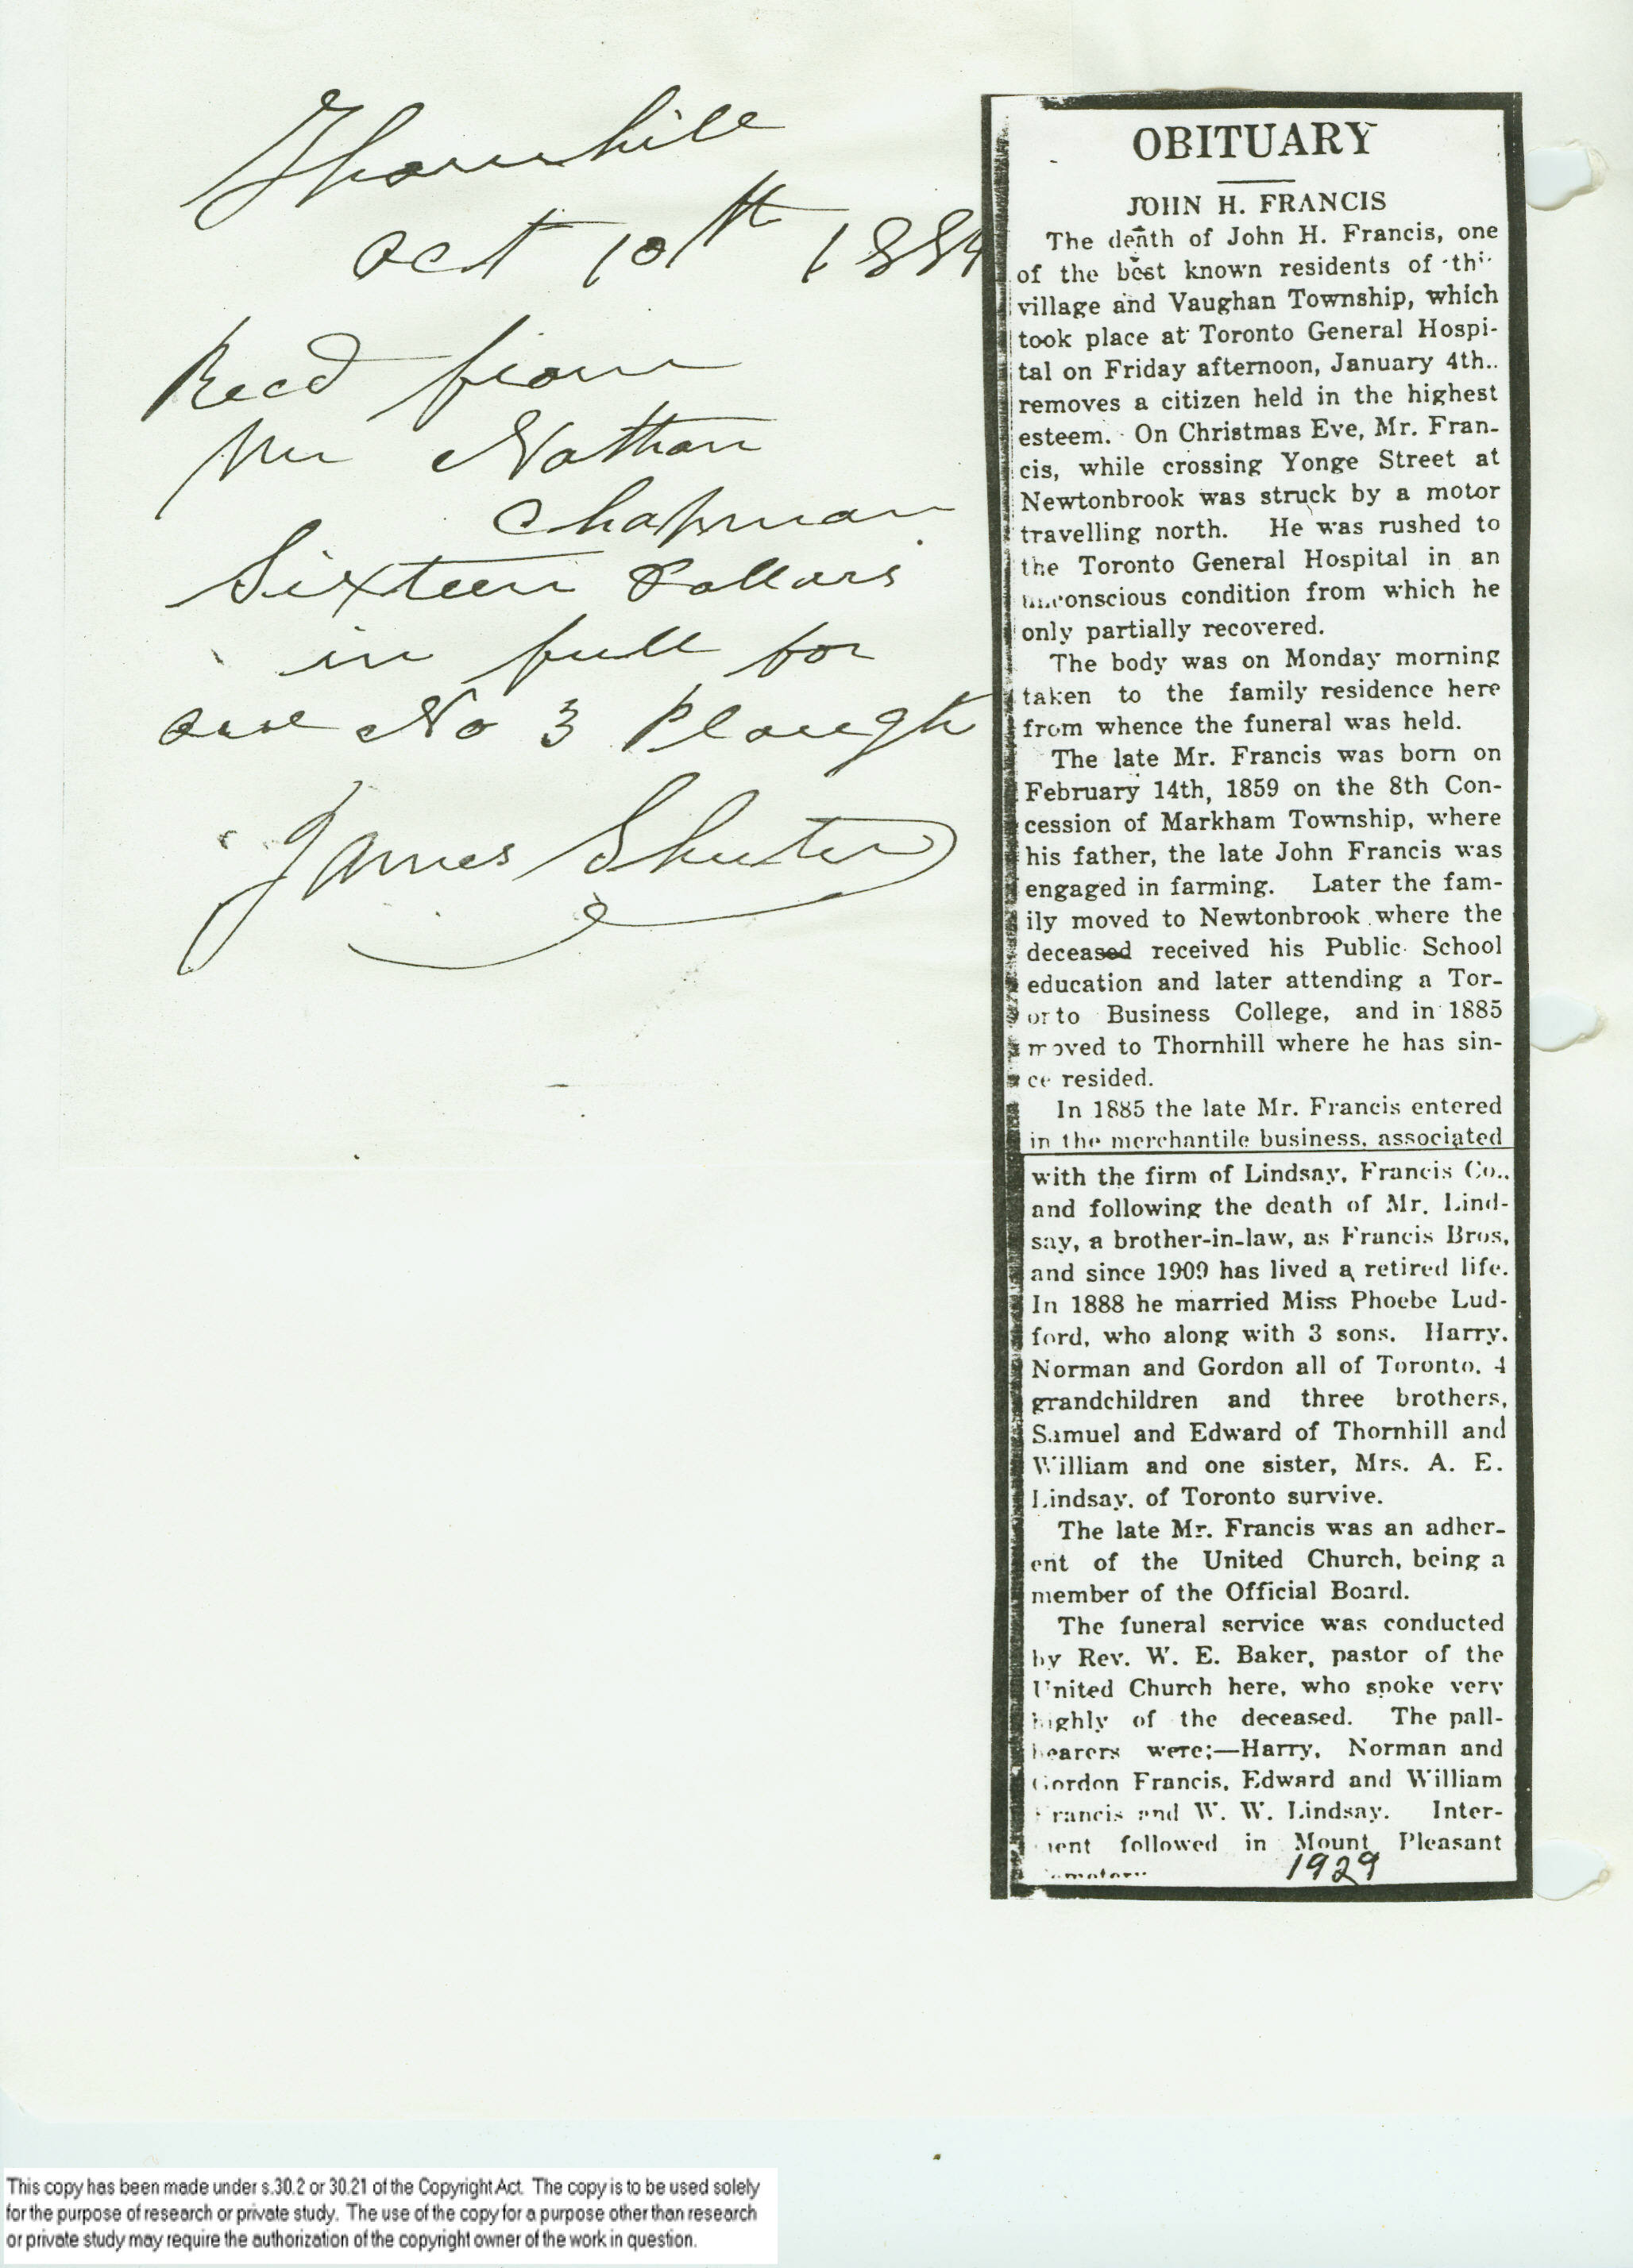 Thornhill
Oct 10th 1884
Recd from
Mr Nathan
Chapman
Sixteen Dollars
in full for
one No 3 Plough
James Shuter
OBITUARY
JOHN H. FRANCIS
The death of John H. Francis, one
of the best known residents of
village and Vaughan Township, which
took place at Toronto General Hospi-
tal on Friday afternoon, January 4th..
removes a citizen held in the highest
esteem. On Christmas Eve, Mr. Fran-
cis, while crossing Yonge Street at
Newtonbrook was struck by a motor
travelling north. He was rushed to
the Toronto General Hospital in an
unconscious condition from which he
only partially recovered.
The body was on Monday morning
taken to the family residence here
from whence the funeral was held.
The late Mr. Francis was born on
February 14th, 1859 on the 8th Con-
cession of Markham Township, where
his father, the late John Francis was
engaged in farming. Later the fam-
ily moved to Newtonbrook where the
deceased received his Public School
education and later attending a Tor-
orto Business College, and in 1885
moved to Thornhill where he has sin-
ce resided.
In 1885 the late Mr. Francis entered
in the merchantile business, associated
with the firm of Lindsay, Francis Co.,
and following the death of Mr. Lind-
say, a brother-in-law, as Francis Bros,
and since 1909 has lived a retired life.
In 1888 he married Miss Phoebe Lud-
ford, who along with 3 sons, Harry,
Norman and Gordon all of Toronto, 4
grandchildren and three brothers,
Samuel and Edward of Thornhill and
William and one sister, Mrs. A. E.
Lindsay, of Toronto survive.
The late Mr. Francis was an adher-
ent of the United Church, being a
member of the Official Board.
The funeral service was conducted
by Rev. W. E. Baker, pastor of the
United Church here, who spoke very
highly of the deceased. The pall-
bearers were;—Harry, Norman and
Gordon Francis, Edward and William
Francis and W. W. Lindsay. Inter-
ment followed in Mount Pleasant
1929
This copy has been made under s.30.2 or 30.21 of the Copyright Act. The copy is to be used solely
for the purpose of research or private study. The use of the copy for a purpose other than research
or private study may require the authorization of the copyright owner of the work in question.